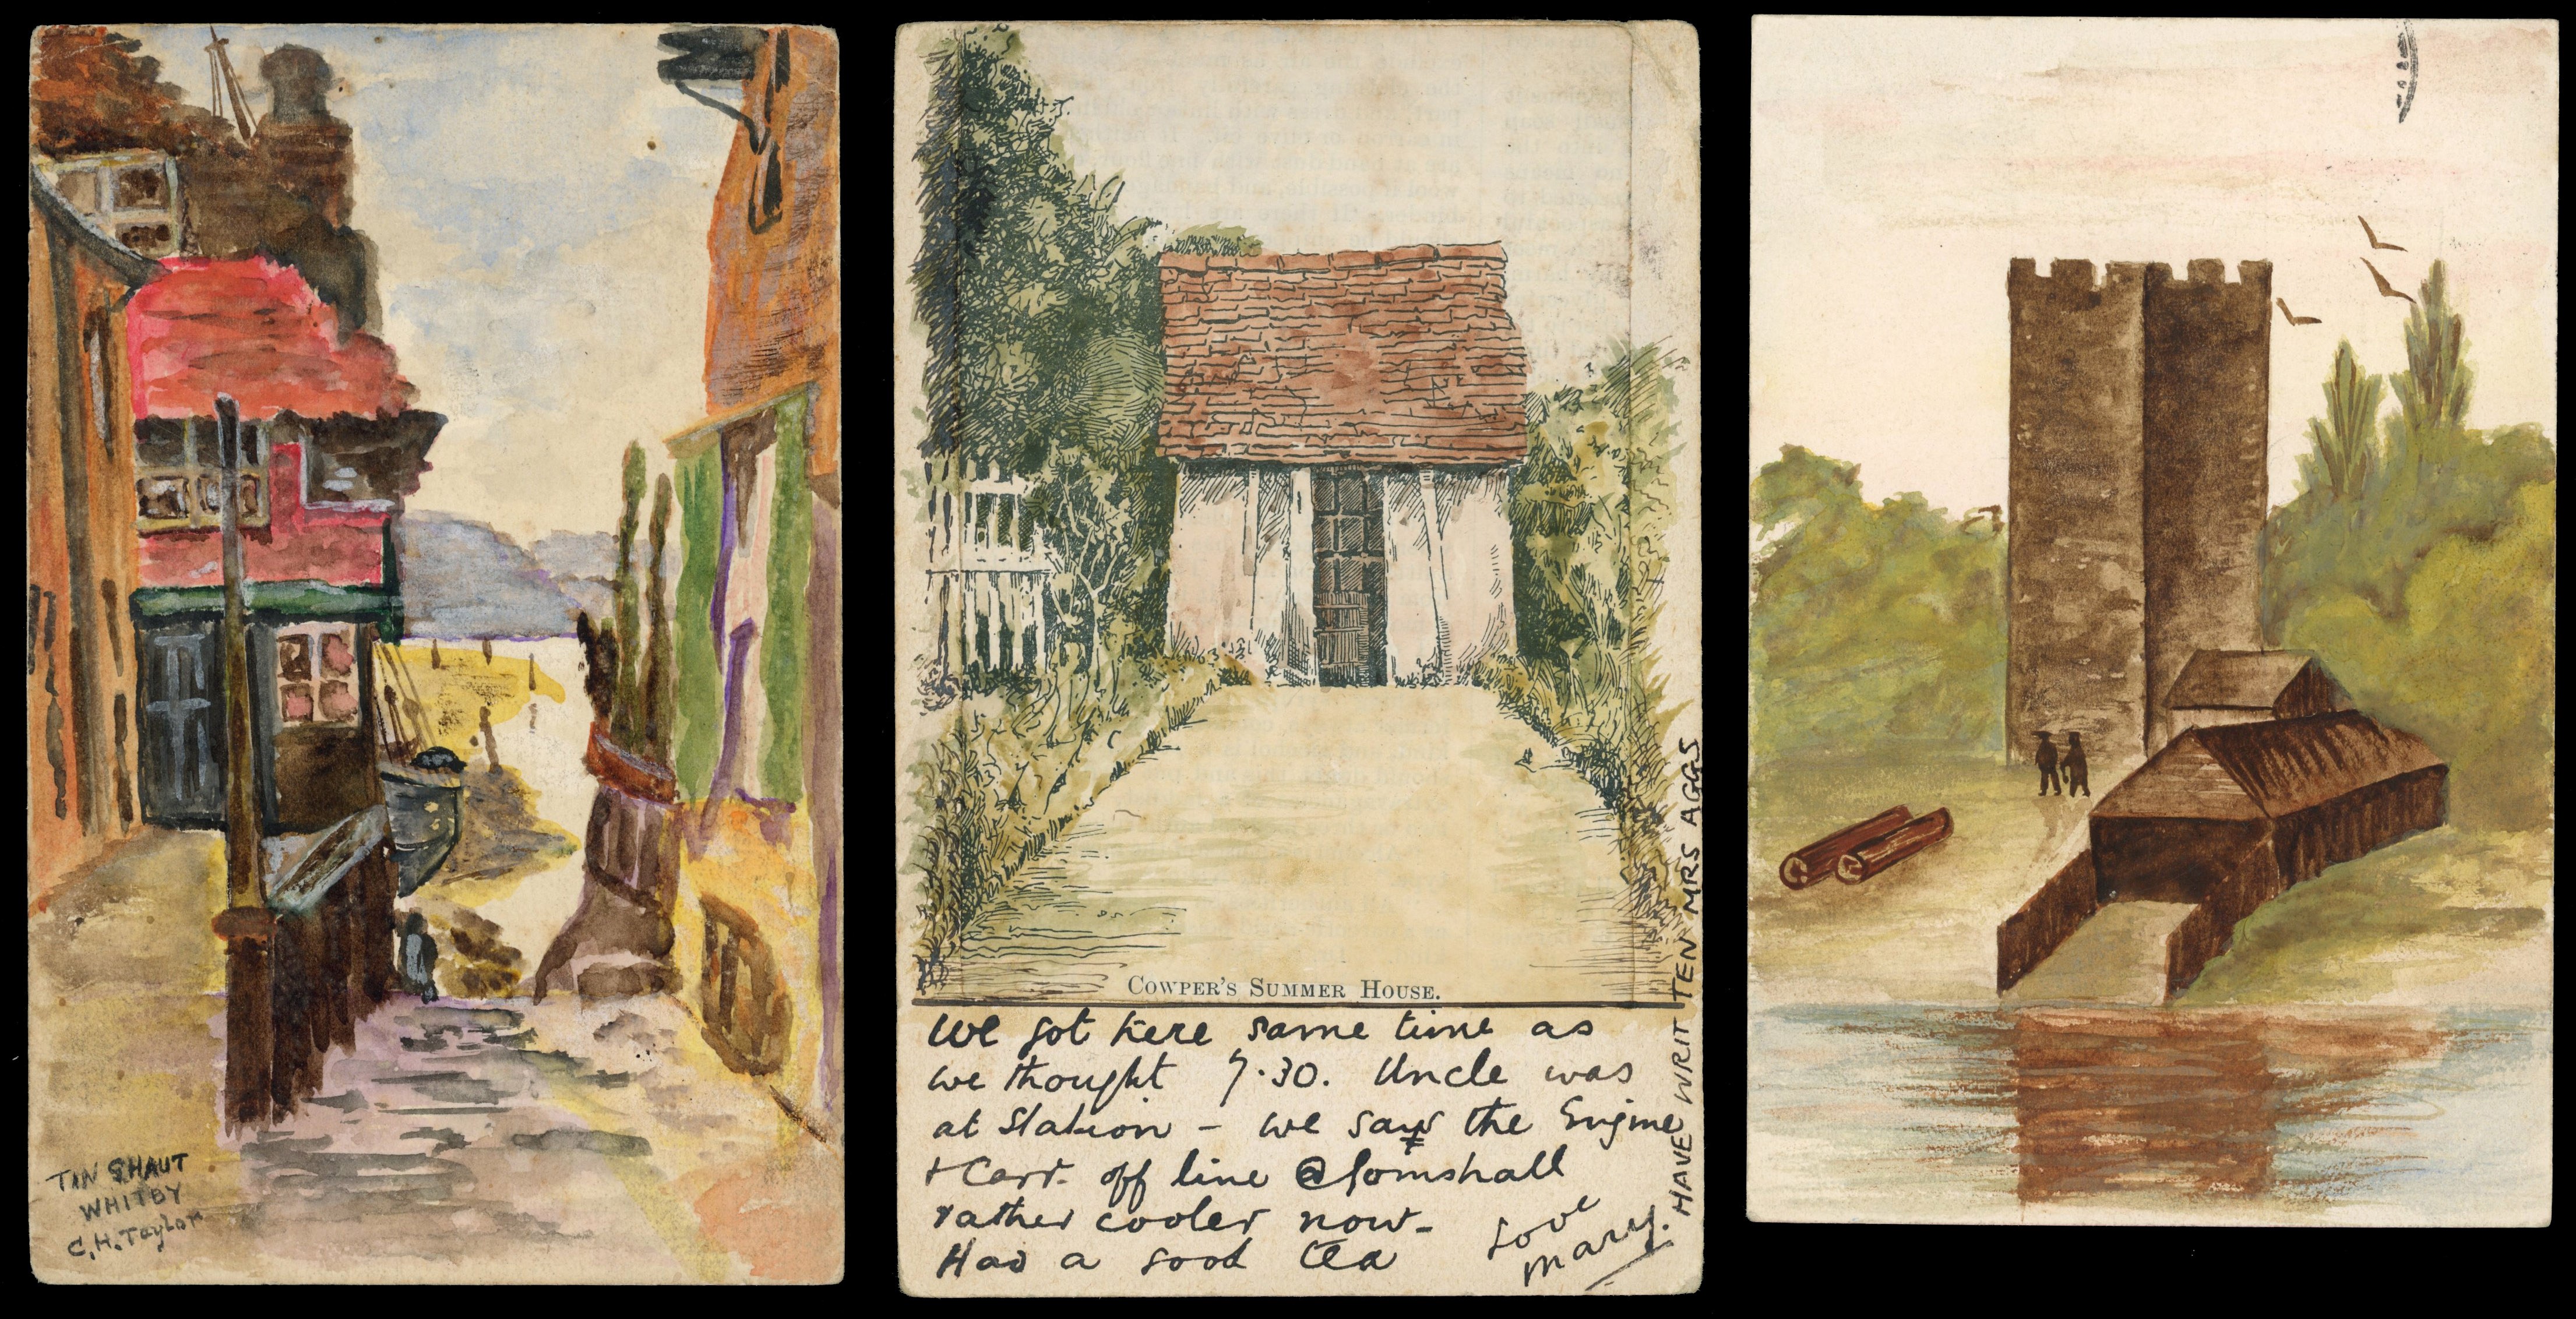 TIN GHAUT
WHITBY
C.H. Taylor
COWPER'S SUMMER HOUSE.
We got here same time as
we thought 7.30. Uncle was
at Station - we saw the Engine
+ Carr. off line @ Gomshall
rather cooler now -
Had a good tea
Love
Mary.
HAVE WRITTEN MRS AGGS